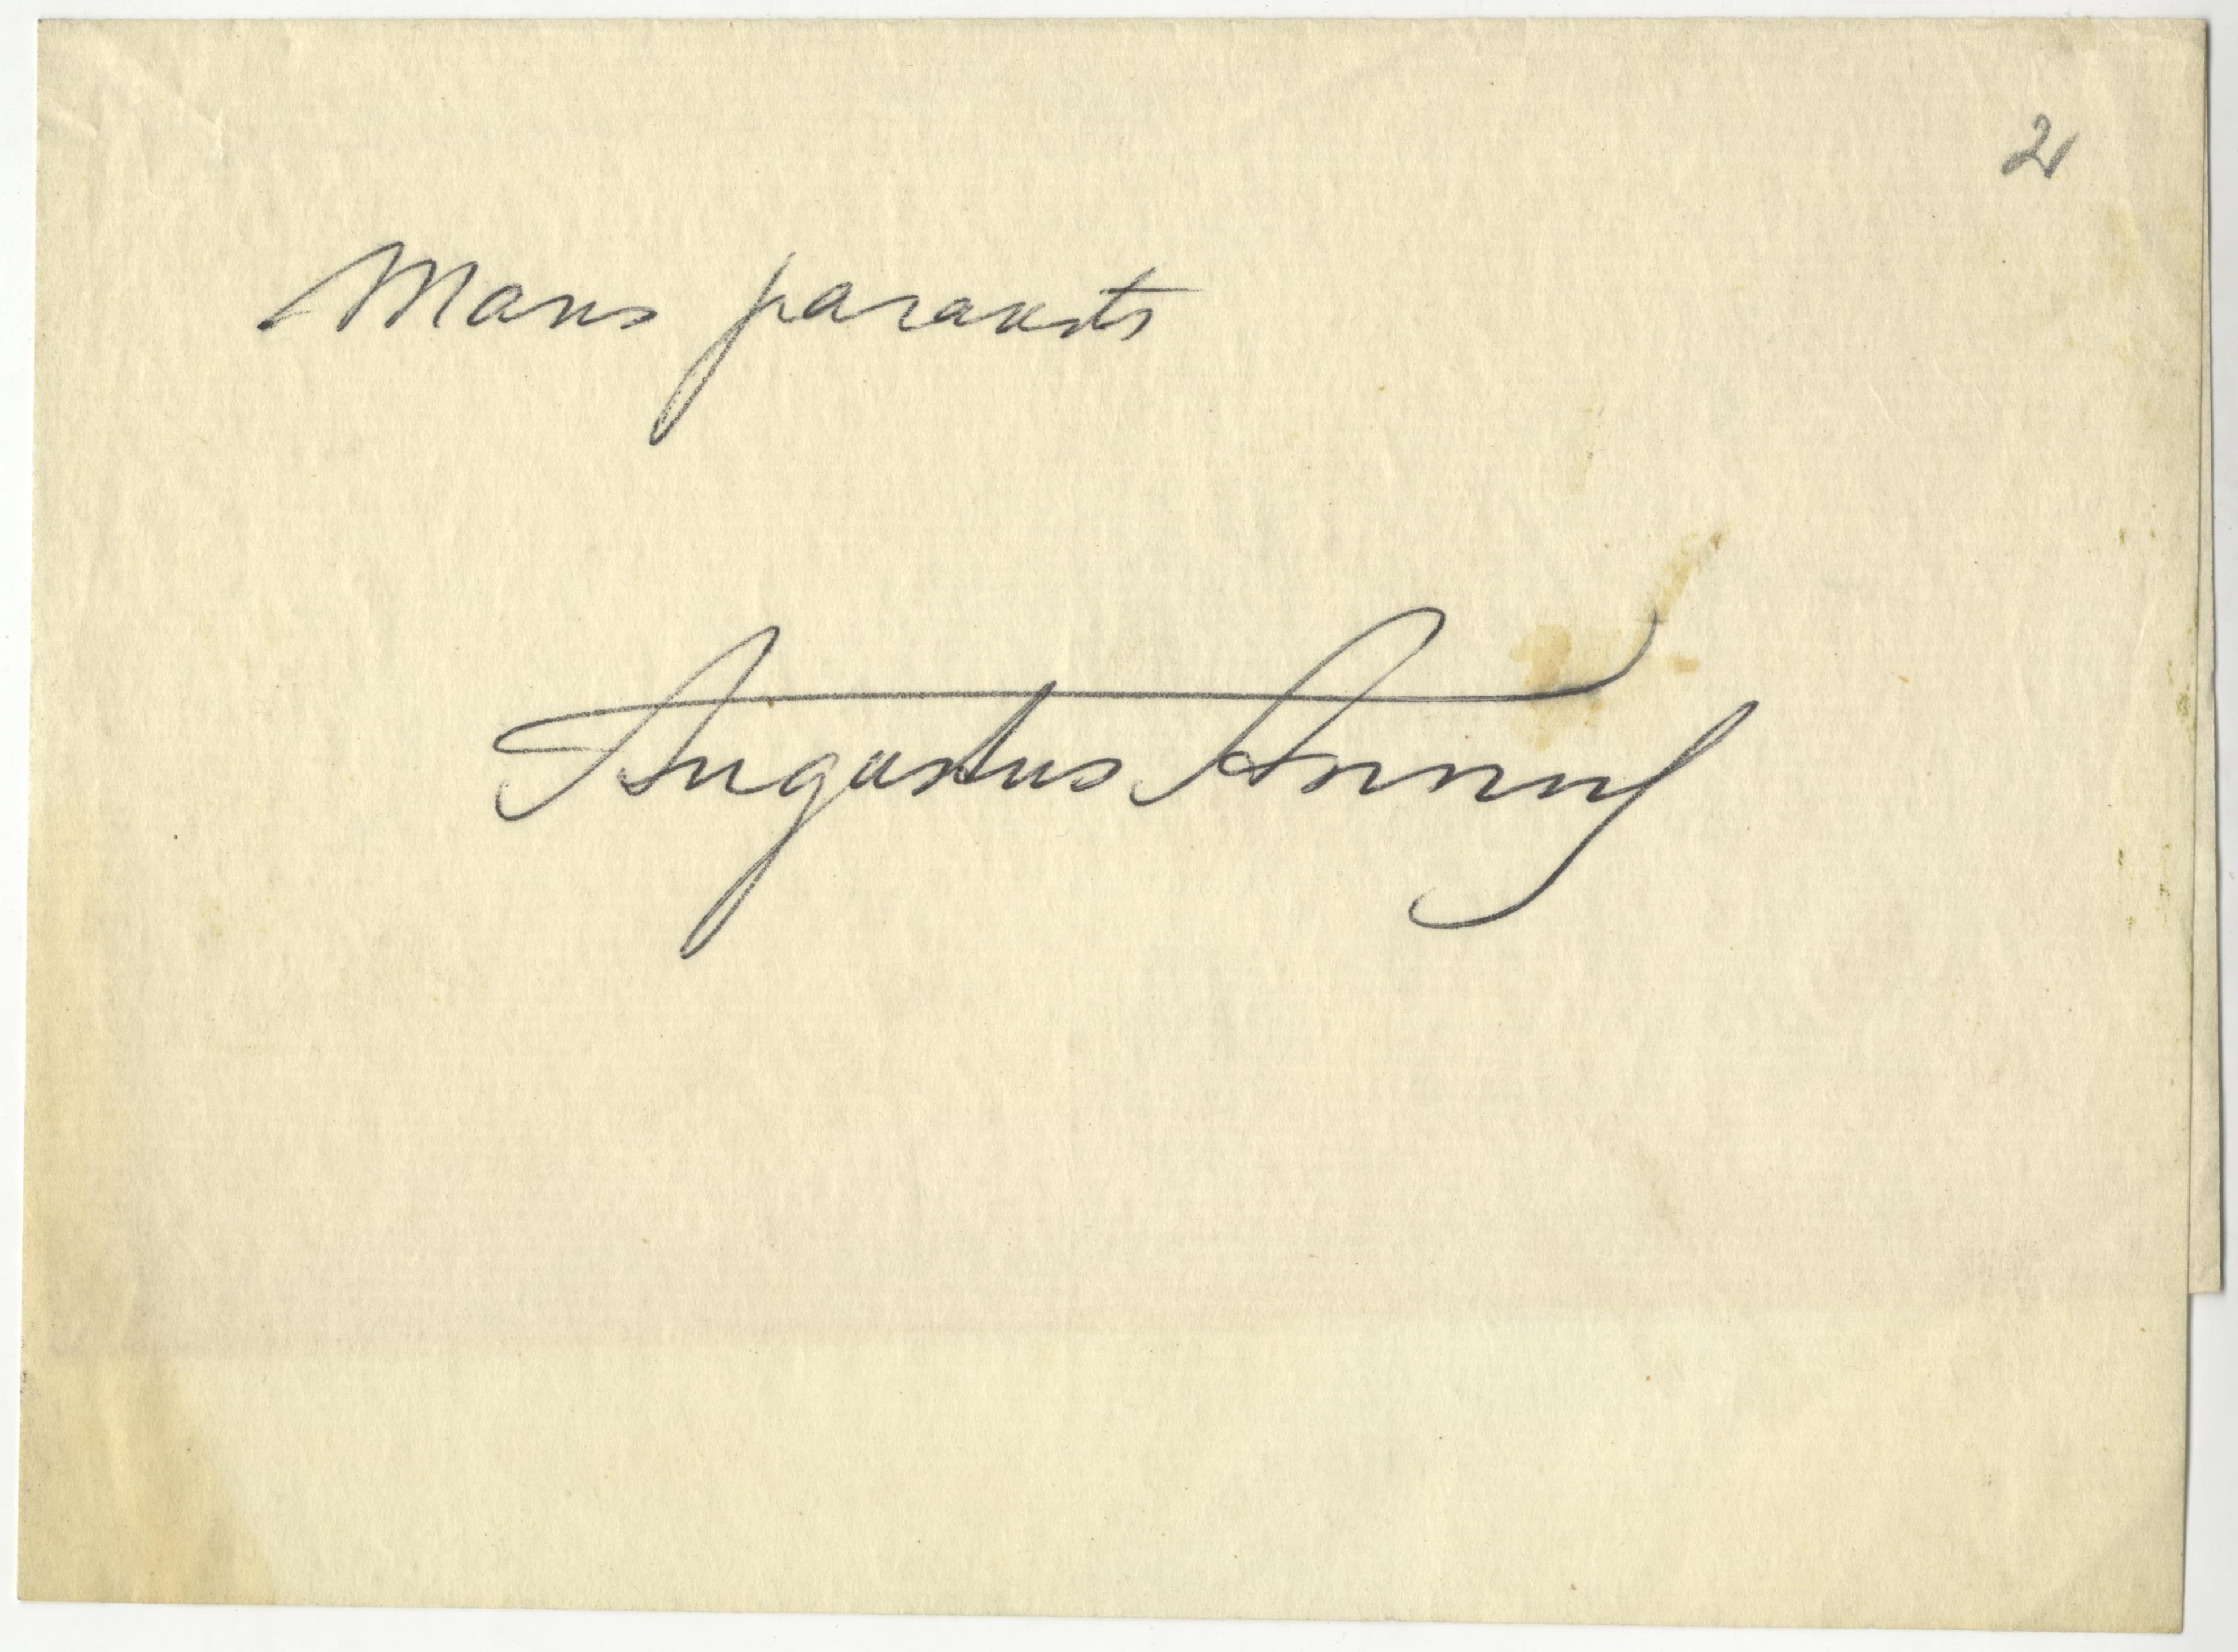 2
Mans paraksts
Augustus Annus